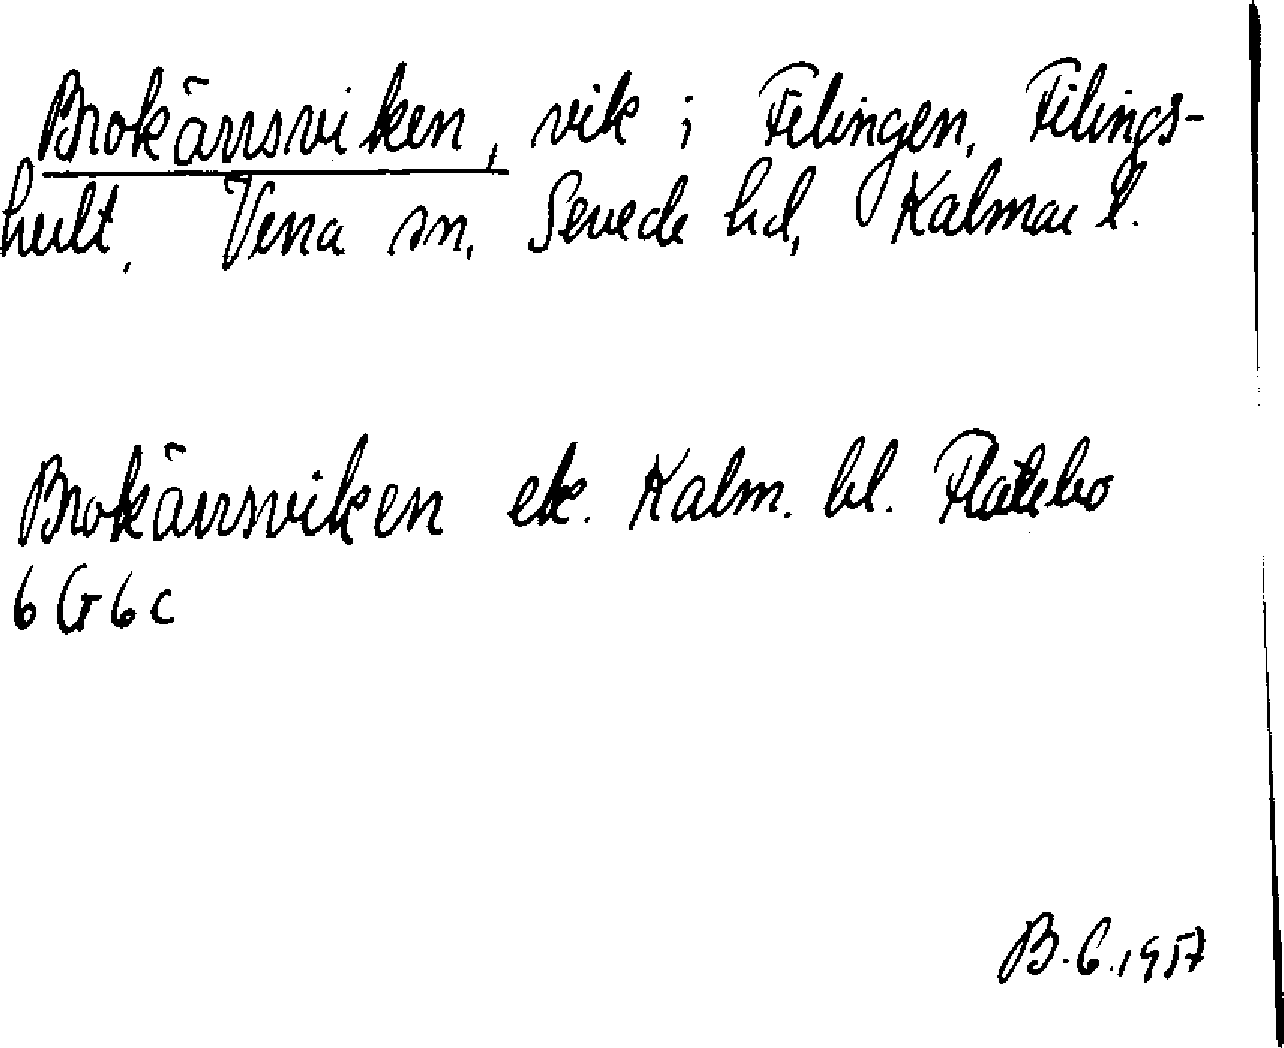 Brokärrsviken, vik i Filingen, Filings-
hult, Vena sn, Sevede hd, Kalmar l.
Brokärrsviken ek. Kalm. bl. Flatebo
6G6c
B. G. 1957